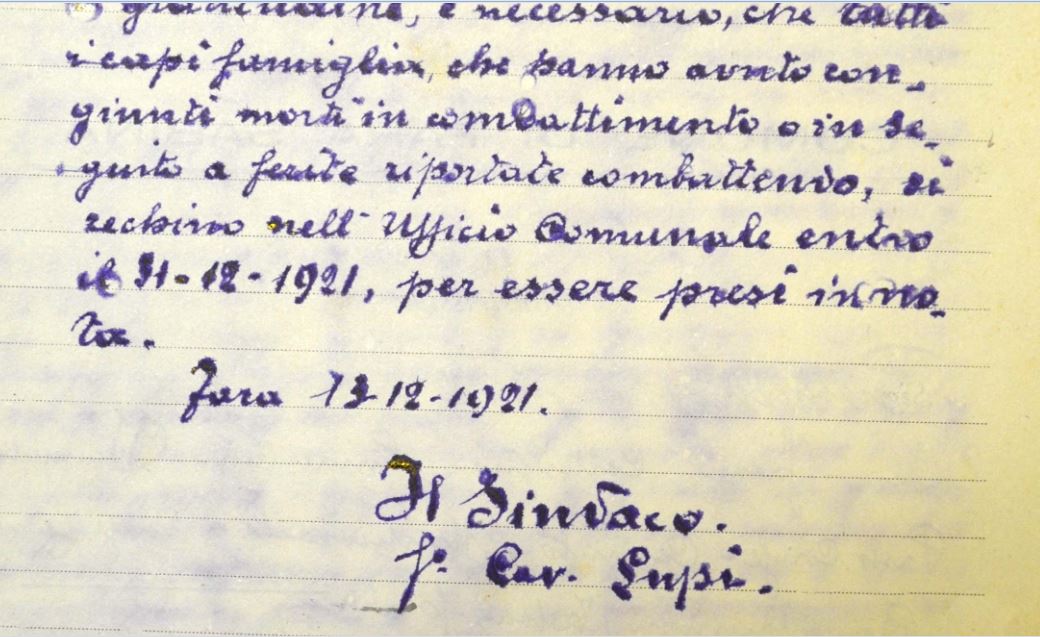 è necessario, che tutti
i capi famiglia, che hanno avuto con-
giunti morti in combattimento o in se-
guito a ferite riportate combattendo, si
rechino nell' Ufficio Comunale entro
il 31-12-1921, per essere presi in no-
ta.
Fara 13-12-1921.
Il Sindaco.
f. Cav. Lupi.